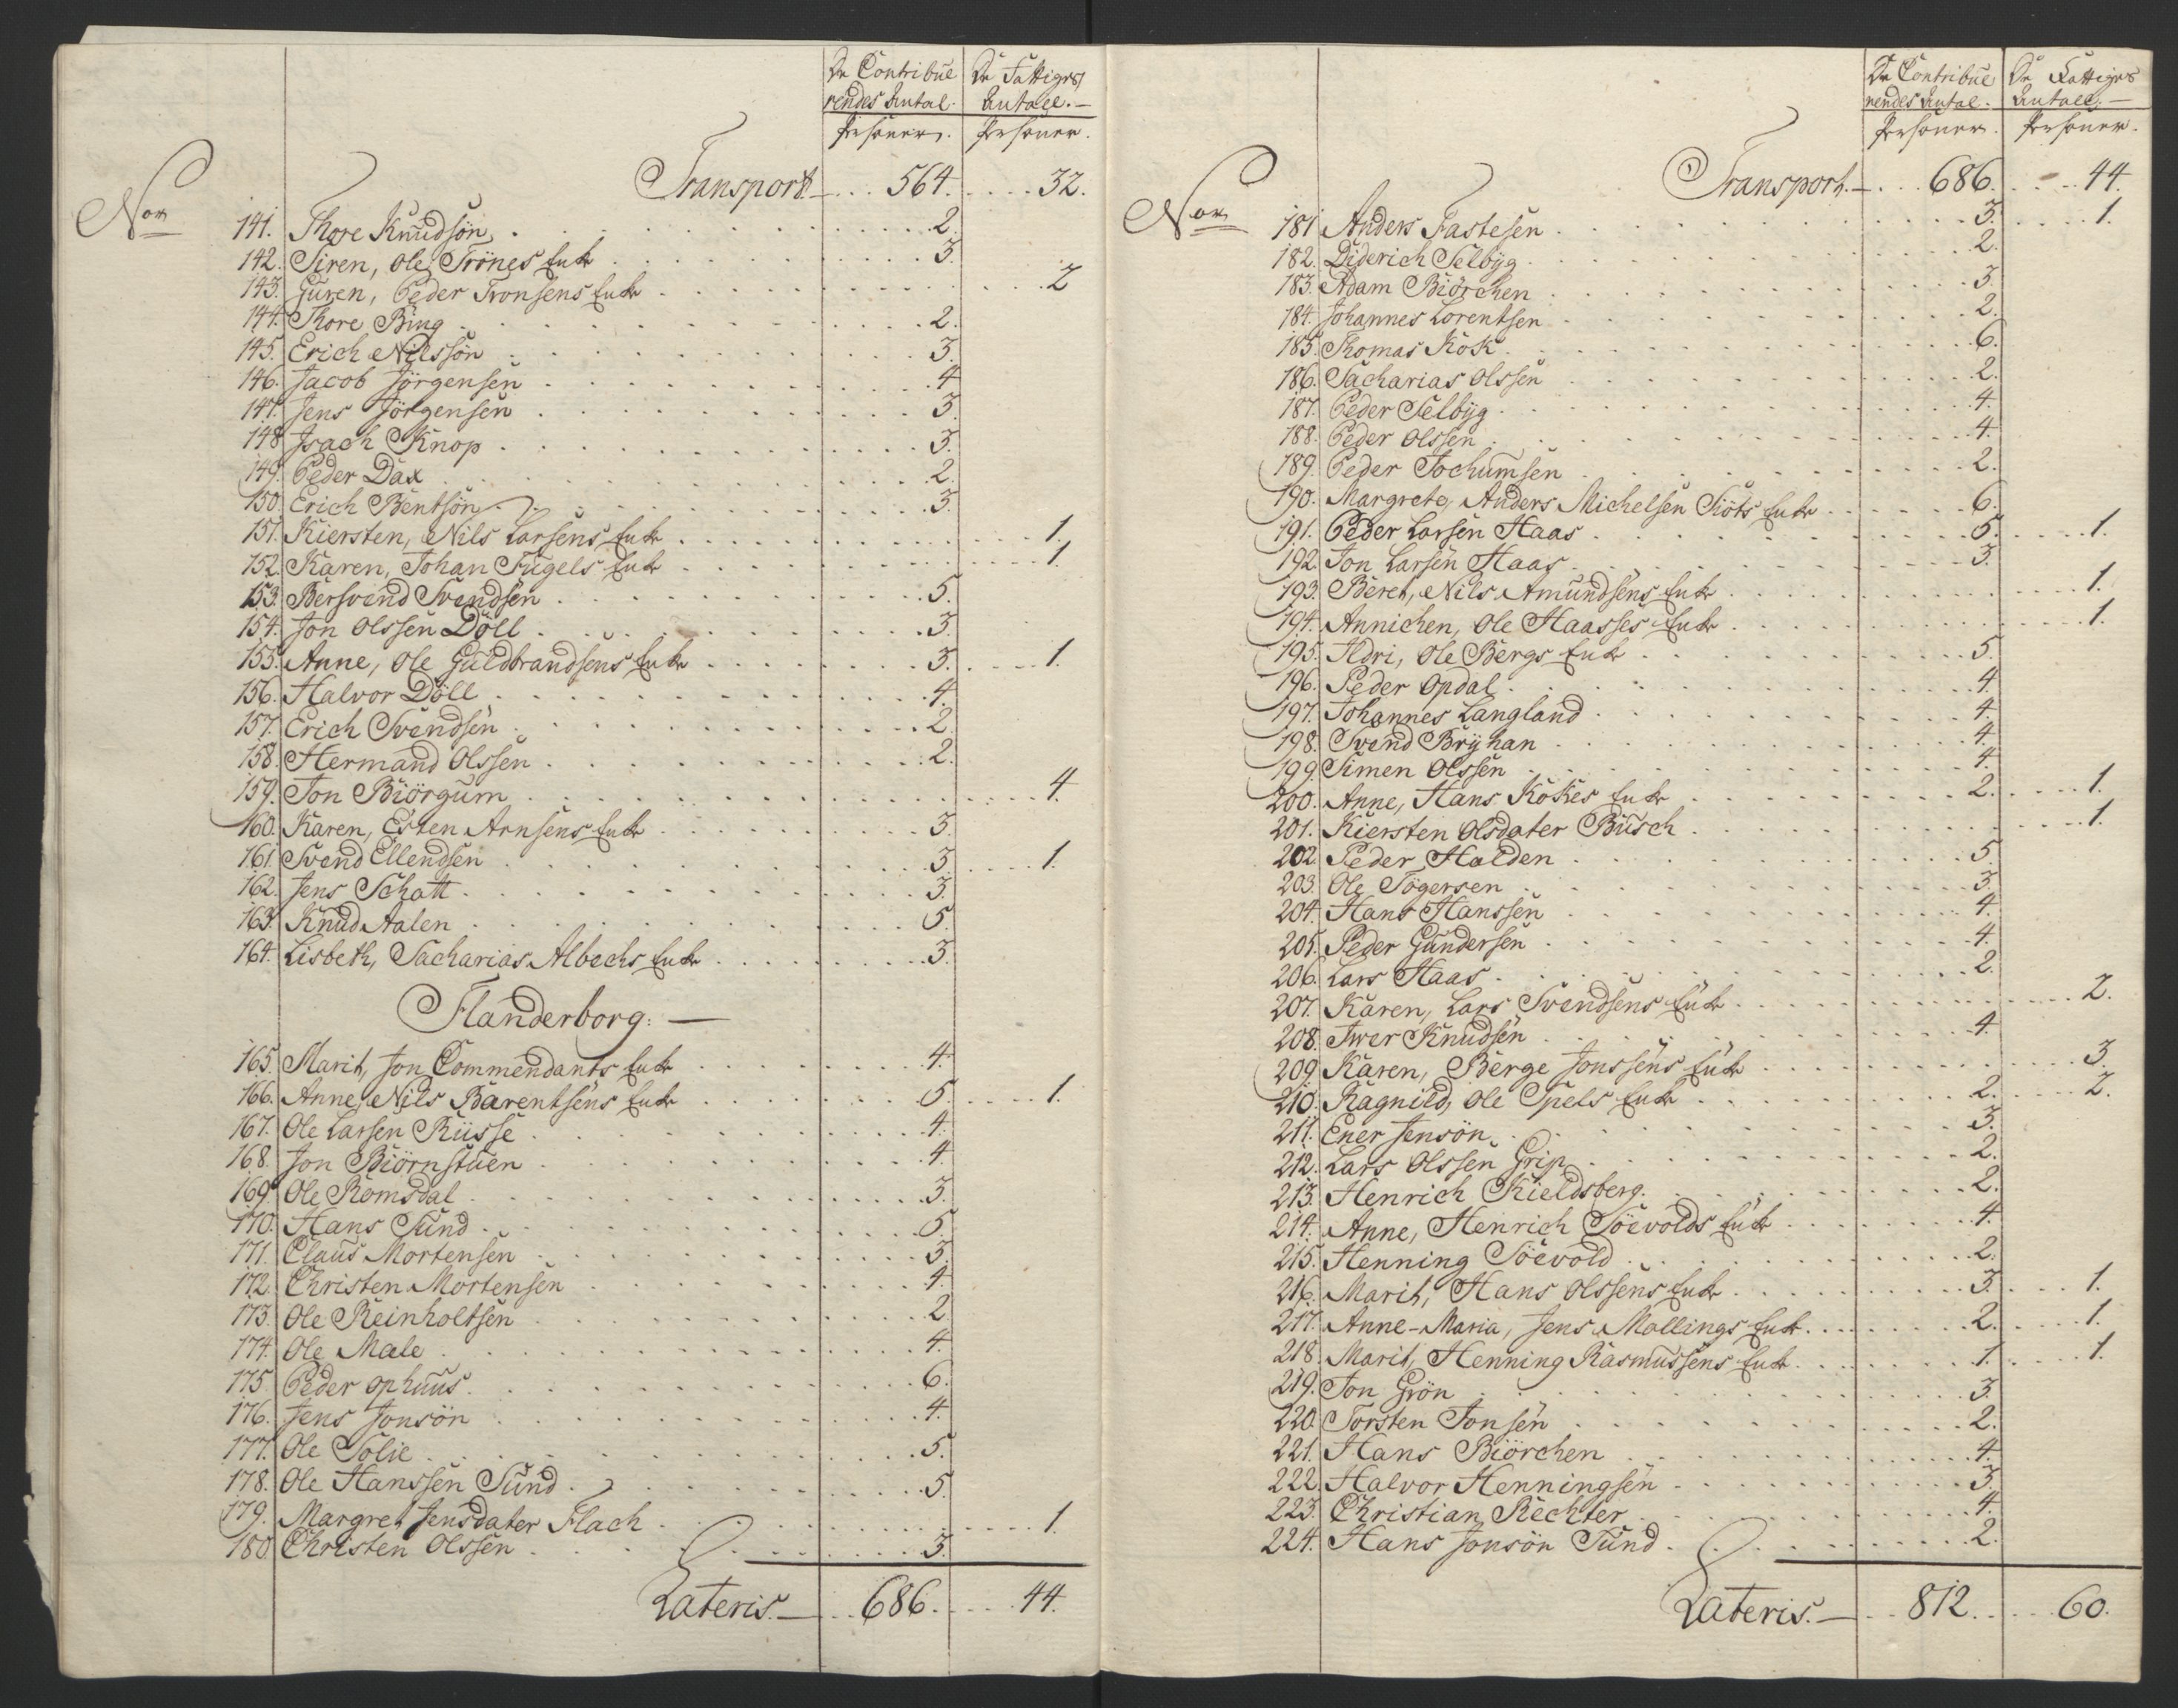 De Contribue De Fattiges
rendes Antal. Antall.
Personer. Personer.
Transport 564. 32.
Nor
141. Thore Knudsön 2.
142. Siren, Ole Trönes Enke 3.
143. Guren, Peder Tronsens Enke 2
144. Thore Bing 2.
145. Erich Nilssön 3.
146. Jacob Jörgensen 4
147. Jens Jörgensen 3.
148 Isach Knop 3.
149. Peder Dax 2.
150. Erich Bentsön 3.
151. Kiersten, Nils Larsens Enke 1.
152. Karen, Johan Fugels Enke 1.
153. Bersvend Svendsen 5.
154. Jon Olssen Döll 3.
155. Anne, Ole Guldbrandsens Enke 3. 1.
156. Halvor Döll 4.
157. Erich Svendsen 2.
158. Hermand Olssen 2.
159. Jon Biörgum 4.
160. Karen, Esten Arnsens Enke 3.
161. Svend Ellendsen 3. 1.
162. Jens Schatt 3.
163. Knud Aalen 5.
164. Lisbeth, Sacharias Albechs Enke 3.
Flanderborg.
165. Marit, Jon Commendants Enke 4.
166. Anne, Nils Barentsens Enke 5. 1.
167. Ole Larsen Russe 4.
168. Jon Biörnstuen 4.
169. Ole Romsdal 3.
170. Hans Sund 5.
171. Claus Mortensen 3.
172. Christen Mortensen 4.
173. Ole Reinholtsen 2
174. Ole Male 4.
175. Peder Ophuus 6.
176. Jens Jonsön 4.
177. Ole Solie 5.
178. Ole Hanssen Sund 5.
179. Margret Jensdater Flach 1.
180. Christen Olssen 3.
Lateris. 686. 44.
De Contribue De Fattiges
rendes Antal. Antall.
Personer. Personer.
Transport. 686. 44.
Nor
181. Anders Fastesen 3. 1.
182. Diderich Selbÿg 2.
183. Adam Biörchen 3.
184. Johannes Lorentsen 2.
185. Thomas Kok 6.
186. Sacharias Olssen 2.
187. Peder Selbÿg 4.
188. Peder Olssen 4.
189. Peder Jochumsen 2.
190. Margrete, Anders Michelsen Siöts Enke 6.
191. Peder Larsen Haas 5. 1.
192. Jon Larsen Haas 3.
193. Beret, Nils Amundsens Enke 1.
194. Annichen, Ole Haasses Enke 1.
195. Ildri, Ole Bergs Enke 5.
196. Peder Opdal 4.
197. Johannes Langland 4.
198. Svend Brÿhan 4.
199. Simen Olssen 4.
200. Anne, Hans Kokes Enke 2. 1.
201. Kiersten Olsdater Busch 1.
202. Peder Halden 5.
203. Ole Tögersen 3.
204. Hans Hanssen 4.
205. Peder Gundersen 4.
206. Lars Haas 2.
207. Karen, Lars Svendsens Enke 2.
208. Iwer Knudsen 4.
209. Karen, Berge Jonssens Enke 3.
210. Ragnild, Ole Spels Enke 2. 2.
211. Ener Jensön 3.
212. Lars Olssen Grip 2.
213. Henrich Kieldsberg 2.
214. Anne, Henrich Söevolds Enke 4.
215. Henning Söevold 2.
216. Marit, Hans Olssens Enke 3. 1.
217. Anne-Maria, Jens Mollings Enke 2. 1.
218. Marit, Henning Rasmussens Enke 1. 1.
219. Jon Grön 3.
220. Torsten Jonsen 2.
221. Hans Biörchen 4.
222. Halvor Henningsen 3.
223. Christian Rechter 4.
224. Hans Jonsön Sund 2.
Lateris. 812. 60.